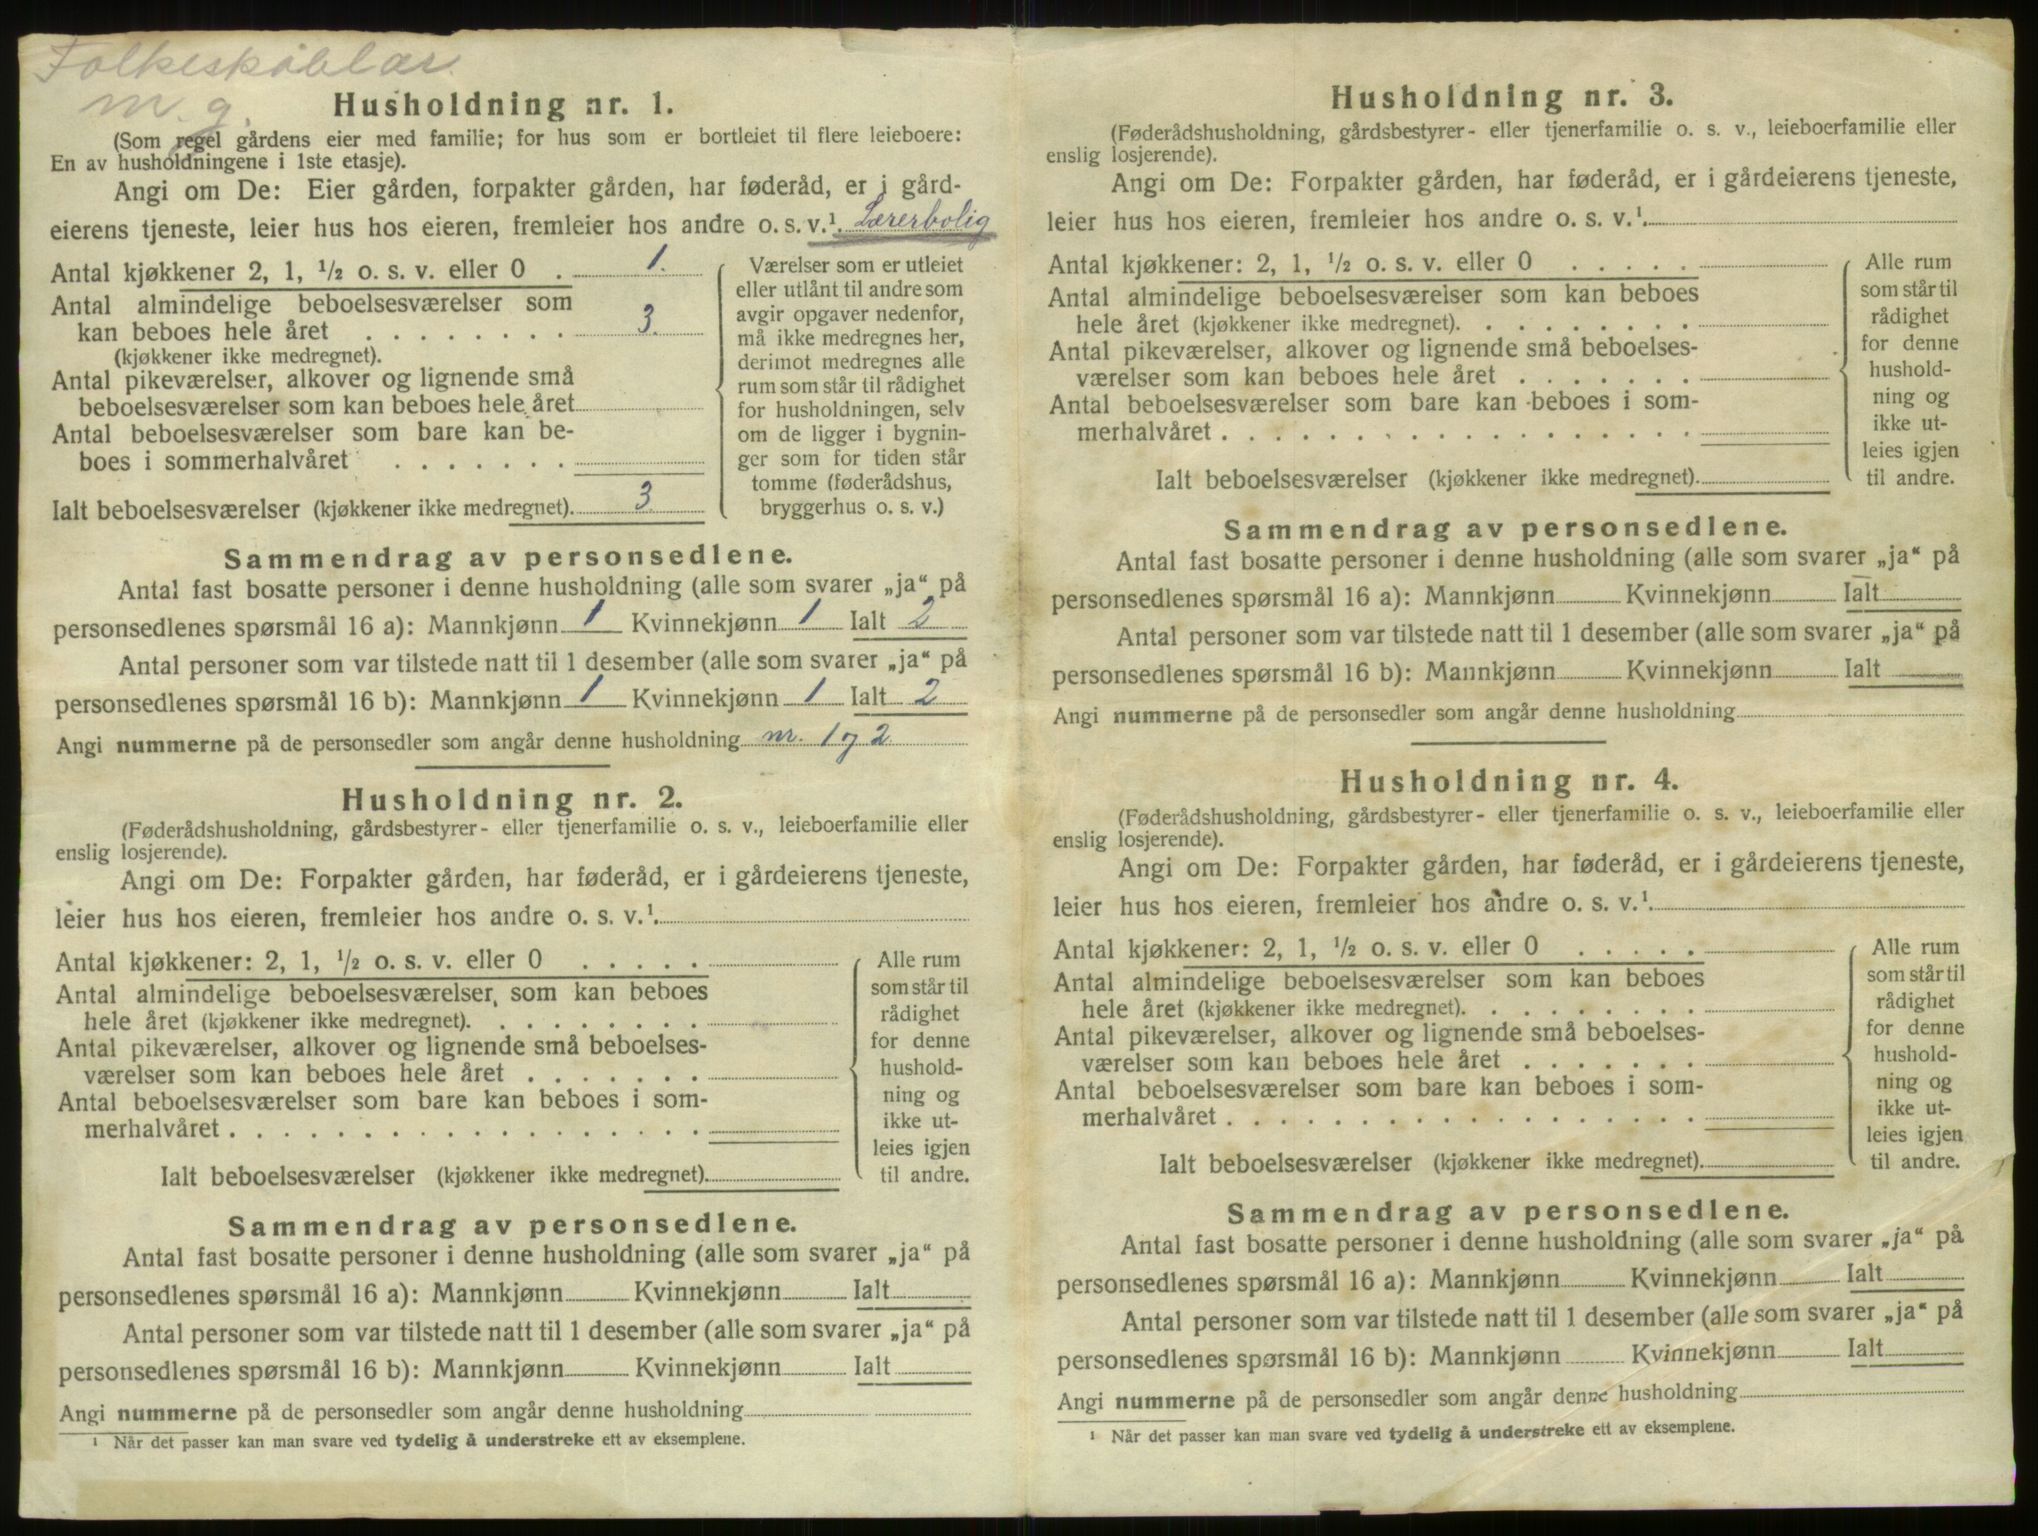 Folkeskolelær.
m. g.
Husholdning nr. 1.
(Som regel gårdens eier med familie; for hus som er bortleiet til flere leieboere:
En av husholdningene i 1ste etasje).
Angi om De: Eier gården, forpakter gården, har føderåd, er i gård-
eierens tjeneste, leier hus hos eieren, fremleier hos andre o. s. v.¹. Lærerbolig
Antal kjøkkener 2, 1, ½ o. s. v. eller 0 . 1.
Antal almindelige beboelsesværelser som
kan beboes hele året . . . . . . . . 3.
(kjøkkener ikke medregnet).
Antal pikeværelser, alkover og lignende små
beboelsesværelser som kan beboes hele året
Antal beboelsesværelser som bare kan be-
boes i sommerhalvåret . . . . . . .
Ialt beboelsesværelser (kjøkkener ikke medregnet). 3
Værelser som er utleiet
eller utlånt til andre som
avgir opgaver nedenfor,
må ikke medregnes her,
derimot medregnes alle
rum som står til rådighet
for husholdningen, selv
om de ligger i bygnin-
ger som for tiden står
tomme (føderådshus,
bryggerhus o. s. v.)
Sammendrag av personsedlene.
Antal fast bosatte personer i denne husholdning (alle som svarer „ja“ på
personsedlenes spørsmål 16 a): Mannkjønn 1 Kvinnekjønn 1 Ialt 2
Antal personer som var tilstede natt til 1 desember (alle som svarer „ja“ på
personsedlenes spørsmål 16 b): Mannkjønn 1 Kvinnekjønn 1 Ialt 2
Angi nummerne på de personsedler som angår denne husholdning nr. 1 og 2
Husholdning nr. 2.
(Føderådshusholdning, gårdsbestyrer- eller tjenerfamilie o. s. v., leieboerfamilie eller
enslig losjerende).
Angi om De: Forpakter gården, har føderåd, er i gårdeierens tjeneste,
leier hus hos eieren, fremleier hos andre o. s. v.¹.
Antal kjøkkener: 2, 1, ½ o. s. v. eller 0 . . . . .
Antal almindelige beboelsesværelser som kan beboes
hele året (kjøkkener ikke medregnet). . . . . . . . .
Antal pikeværelser, alkover og lignende små beboelses-
værelser som kan beboes hele året . . . . . . .
Antal beboelsesværelser som bare kan beboes i som-
merhalvåret . . . . . . . . . . . . . . . . . .
Ialt beboelsesværelser (kjøkkener ikke medregnet).
Alle rum
som står til
rådighet
for denne
hushold-
ning og
ikke ut-
leies igjen
til andre.
Sammendrag av personsedlene.
Antal fast bosatte personer i denne husholdning (alle som svarer „ja“ på
personsedlenes spørsmål 16 a): Mannkjønn Kvinnekjønn Ialt
Antal personer som var tilstede natt til 1 desember (alle som svarer „ja“ på
personsedlenes spørsmål 16 b): Mannkjønn Kvinnekjønn Ialt
Angi nummerne på de personsedler som angår denne husholdning
¹ Når det passer kan man svare ved tydelig å understreke ett av eksemplene.
Husholdning nr. 3.
(Føderådshusholdning, gårdsbestyrer- eller tjenerfamilie o. s. v., leieboerfamilie eller
enslig losjerende).
Angi om De: Forpakter gården, har føderåd, er i gårdeierens tjeneste,
leier hus hos eieren, fremleier hos andre o. s. v.¹.
Antal kjøkkener: 2, 1, ½ o. s. v. eller 0 . . . . .
Antal almindelige beboelsesværelser som kan beboes
hele året (kjøkkener ikke medregnet). . . . . . . . .
Antal pikeværelser, alkover og lignende små beboelses-
værelser som kan beboes hele året . . . . . . .
Antal beboelsesværelser som bare kan beboes i som-
merhalvåret . . . . . . . . . . . . . . . . . .
Ialt beboelsesværelser (kjøkkener ikke medregnet).
Alle rum
som står til
rådighet
for denne
hushold-
ning og
ikke ut-
leies igjen
til andre.
Sammendrag av personsedlene.
Antal fast bosatte personer i denne husholdning (alle som svarer „ja“ på
personsedlenes spørsmål 16 a): Mannkjønn Kvinnekjønn Ialt
Antal personer som var tilstede natt til 1 desember (alle som svarer „ja“ på
personsedlenes spørsmål 16 b): Mannkjønn Kvinnekjønn Ialt
Angi nummerne på de personsedler som angår denne husholdning
Husholdning nr. 4.
(Føderådshusholdning, gårdsbestyrer- eller tjenerfamilie o. s. v., leieboerfamilie eller
enslig losjerende).
Angi om De: Forpakter gården, har føderåd, er i gårdeierens tjeneste,
leier hus hos eieren, fremleier hos andre o. s. v.¹.
Antal kjøkkener: 2, 1, ½ o. s. v. eller 0 . . . . .
Antal almindelige beboelsesværelser som kan beboes
hele året (kjøkkener ikke medregnet). . . . . . . . .
Antal pikeværelser, alkover og lignende små beboelses-
værelser som kan beboes hele året . . . . . . .
Antal beboelsesværelser som bare kan beboes i som-
merhalvåret . . . . . . . . . . . . . . . . . .
Ialt beboelsesværelser (kjøkkener ikke medregnet).
Alle rum
som står til
rådighet
for denne
hushold-
ning og
ikke ut-
leies igjen
til andre.
Sammendrag av personsedlene.
Antal fast bosatte personer i denne husholdning (alle som svarer „ja“ på
personsedlenes spørsmål 16 a): Mannkjønn Kvinnekjønn Ialt
Antal personer som var tilstede natt til 1 desember (alle som svarer „ja“ på
personsedlenes spørsmål 16 b): Mannkjønn Kvinnekjønn Ialt
Angi nummerne på de personsedler som angår denne husholdning
¹ Når det passer kan man svare ved tydelig å understreke ett av eksemplene.